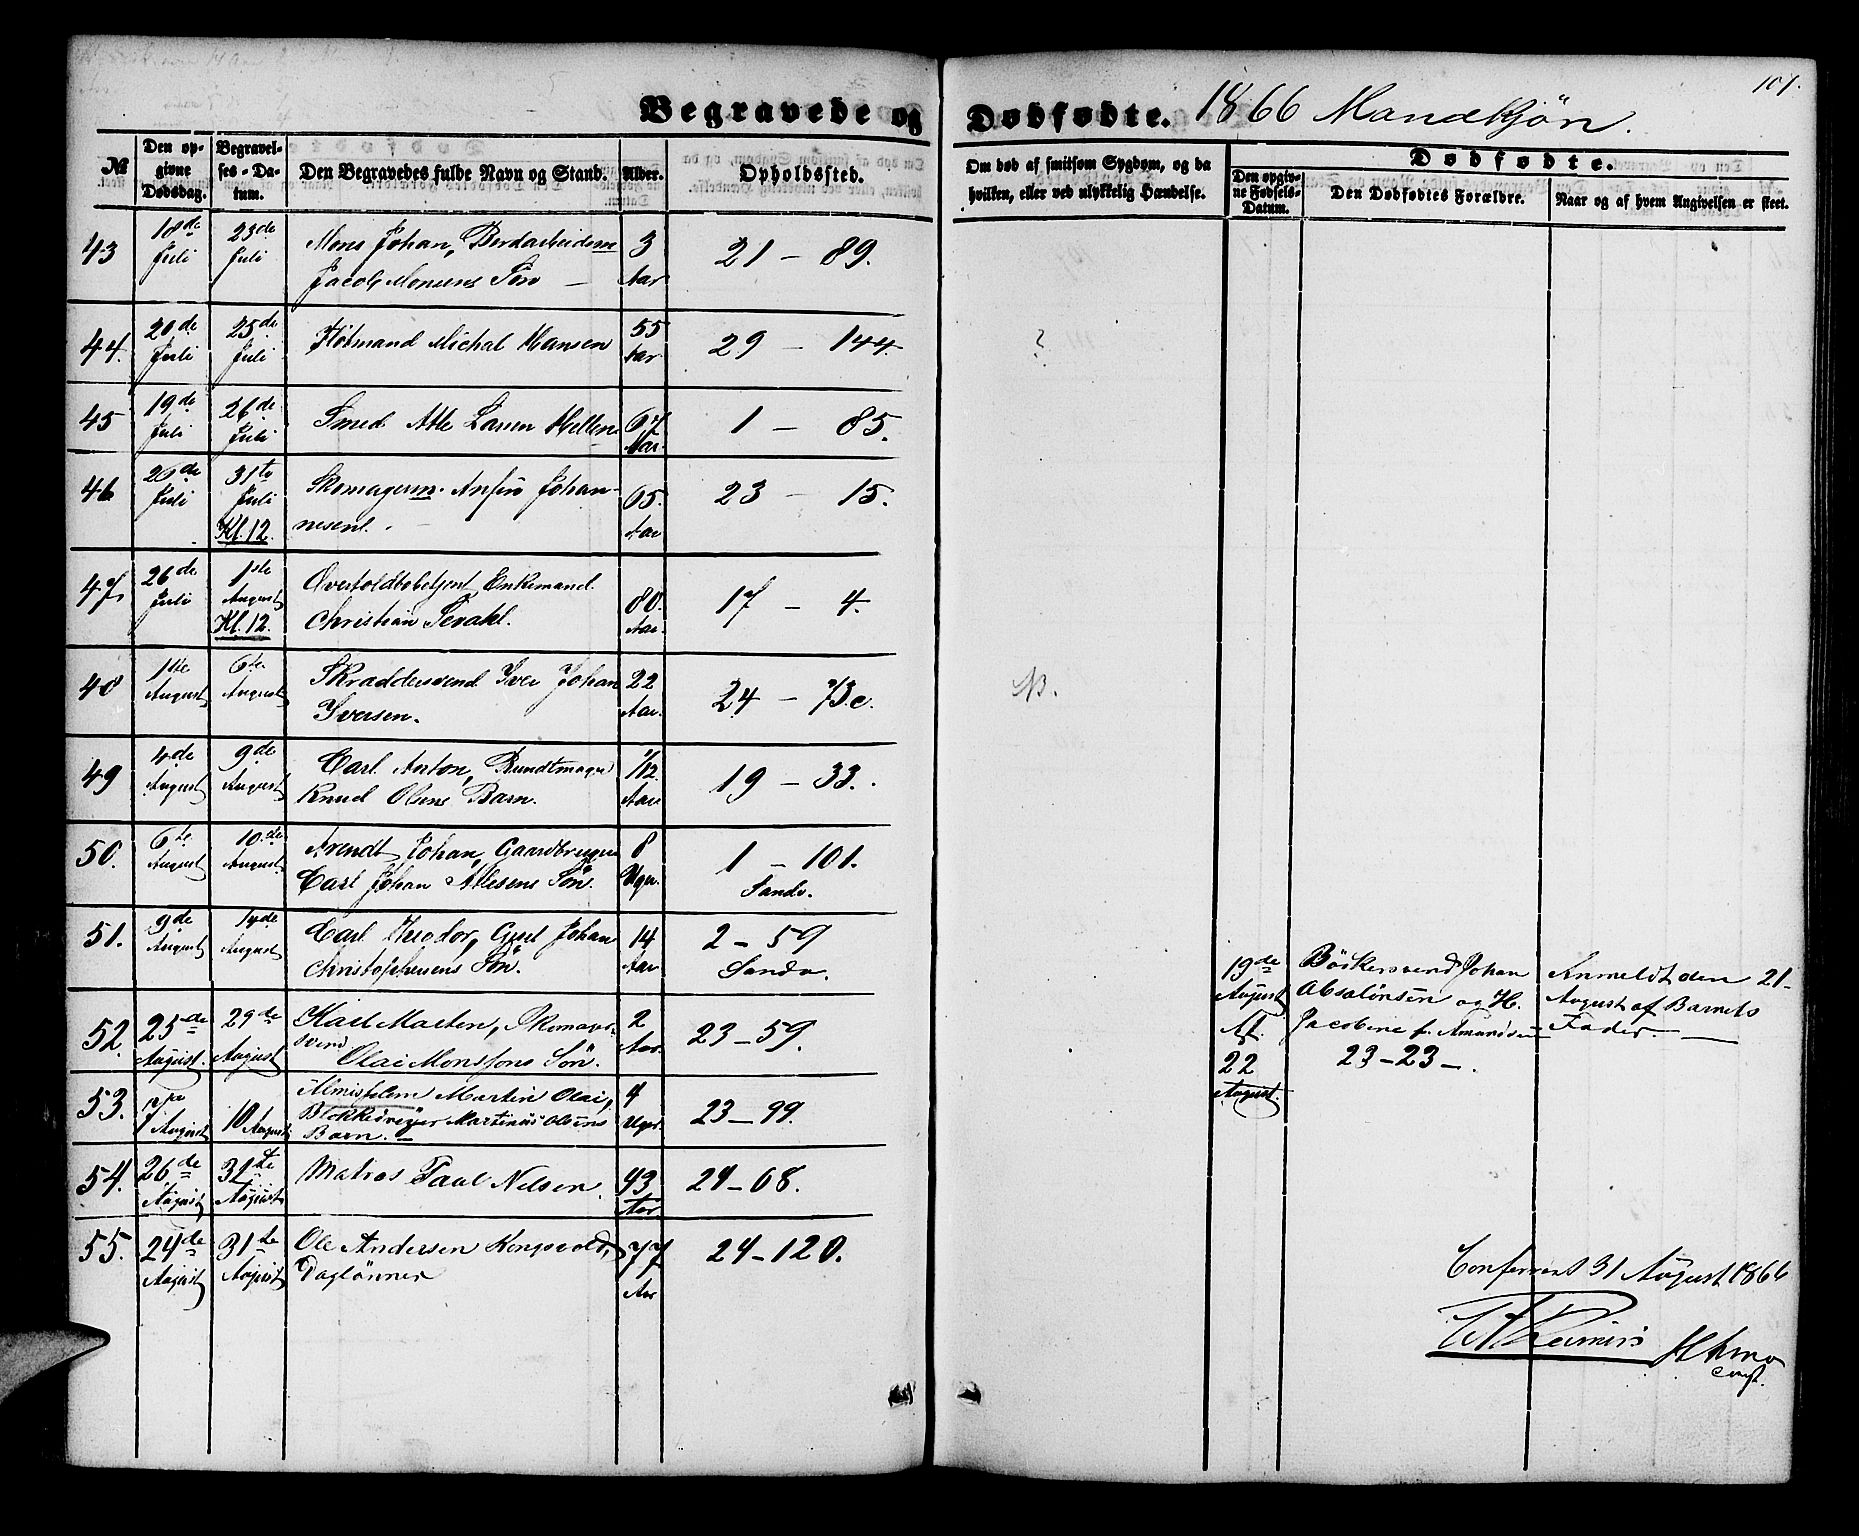 107.
Begravede og Dødfødte. 1866 Mandkjøn.
№
Den opgivne Dødsdag.
Begravelses-Datum.
Den Begravedes fulde Navn og Stand.
Alder.
Opholdssted.
Om død af smitsom Sygdom, og da hvilken, eller ved ulykkelig Hændelse.
Dødfødte.
Den opgivne Fødsels-Datum.
Den Dødfødtes Forældre.
Naar og af hvem Angivelsen er skeet.
43 18de Juli 23de Juli Mons Johan, Bordarbeiderm 3 Aar 21 – 89.
Jacob Monsens Søn –
44. 20de Juli 25de Juli Michal Hansen 55 Aar 29 – 144. ?
45 19de Juli 26de Juli Smed Atle Larsen Hellen 67 Aar. 1 – 85.
46 26de Juli 31te Juli Kl. 12. Skomagerm. Anfin Johan- 65. Aar 23 – 15.
nesen.
47. 26de Juli 1ste August Kl. 12. Overtoldbetjent Enkemand 80. Aar. 17 – 4.
Christian
48 1ste August 6te August Skräddersvend Iver Johan 22 Aar. 24 – 73.c. N.
Iversen.
49 4de August 9de August Carl Anton, Bundtmager 1/12. Aar 19 – 33.
Knud Olsens Barn.
50. 6te August 10de August Arendt Johan, Gaardbruger 8 Uger. 1 – 101.
Carl Johan Atlesens Søn. Sandv.
51. 9de August 14de August Carl Theodor, Johan 14 Aar 2 – 59
Christophersens Søn. Sandv.
19de August Af. 22 August. Bödkersvend Johan Anmeldt den 21-
Absalonsen og H. August af Barnets
Jacobine f. Amundsen Fader. –
23 – 23 – .
52. 25de August. 29de August Karl Marten, Skomager- 2 Aar. 23 – 59.
svend
Olai Monssons Søn.
53. 7 August 10 August Almisselem Martin Olai, 4 Uger. 23 – 99.
Blokkedreier Martinus Olsens
Barn. –
54. 26de August 31te August Matros Paul Nilsen 43 Aar. 24 – 68.
55. 24de August 31te August Ole Andersen Kongsvold, 77 Aar 24 – 120.
Daglönner
Confereret 31 August 1866
Reimers
const.